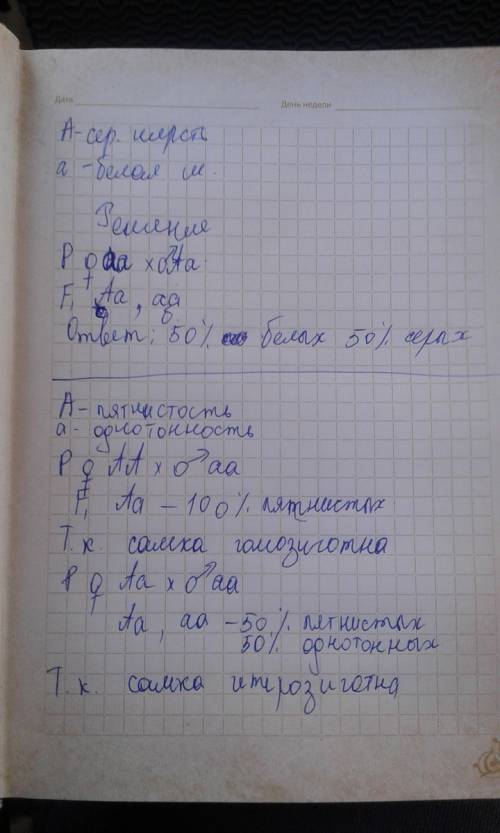 Дата День недели
А - сер. шерсть
а - белая ш.
Решение
Р ♀ аа × ♂ Аа
F₁ Аа, аа
Ответ: 50% белых 50% серых
А - пятнистость
а - однотонность
Р ♀ АА × ♂ аа
F₁ Аа - 100% пятнистых
Т.к. самка гомозиготна
Р ♀ Аа × ♂ аа
Аа, аа - 50% пятнистых
50% однотонных
Т.к. самка итерозиготна